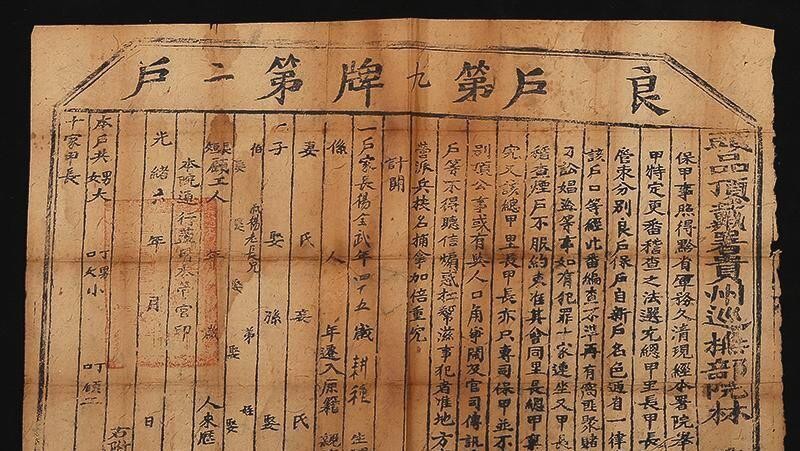 良戶第九牌第二戶
頭品頂戴署貴州巡撫部院林
保甲事照得黔省軍務久清現經本署院舉
甲特定更番稽查之法選充總甲里長甲長
管束分別良戶保戶自新戶名色通省一律
該戶口等經此番編查不準再有窩匪聚賭
刁訟娼盜等事如有犯罪十家連坐又甲長
稽查煙戶不服約束准其會同里長總甲稟
究又該總甲里長甲長亦只專司保甲並不
別項公事或有與人口角爭鬧及官司傳訊
戶等不得聽信煽惑拉幫滋事犯者准地方
營派兵按名捕拿加倍重究
計開
一戶家長楊全武年四十五歲耕種
係 人 年遷入原籍
妻 氏 妾 氏
一子 娶 孫 娶
伯 叔楊老長兄 娶 弟 娶 侄 娶
長短雇工人 年 歲 人來歷
本院通行蓋用本營官印
光緒六年 月 日
本戶共男女大 丁口 男女小 丁口
十家甲長
右附